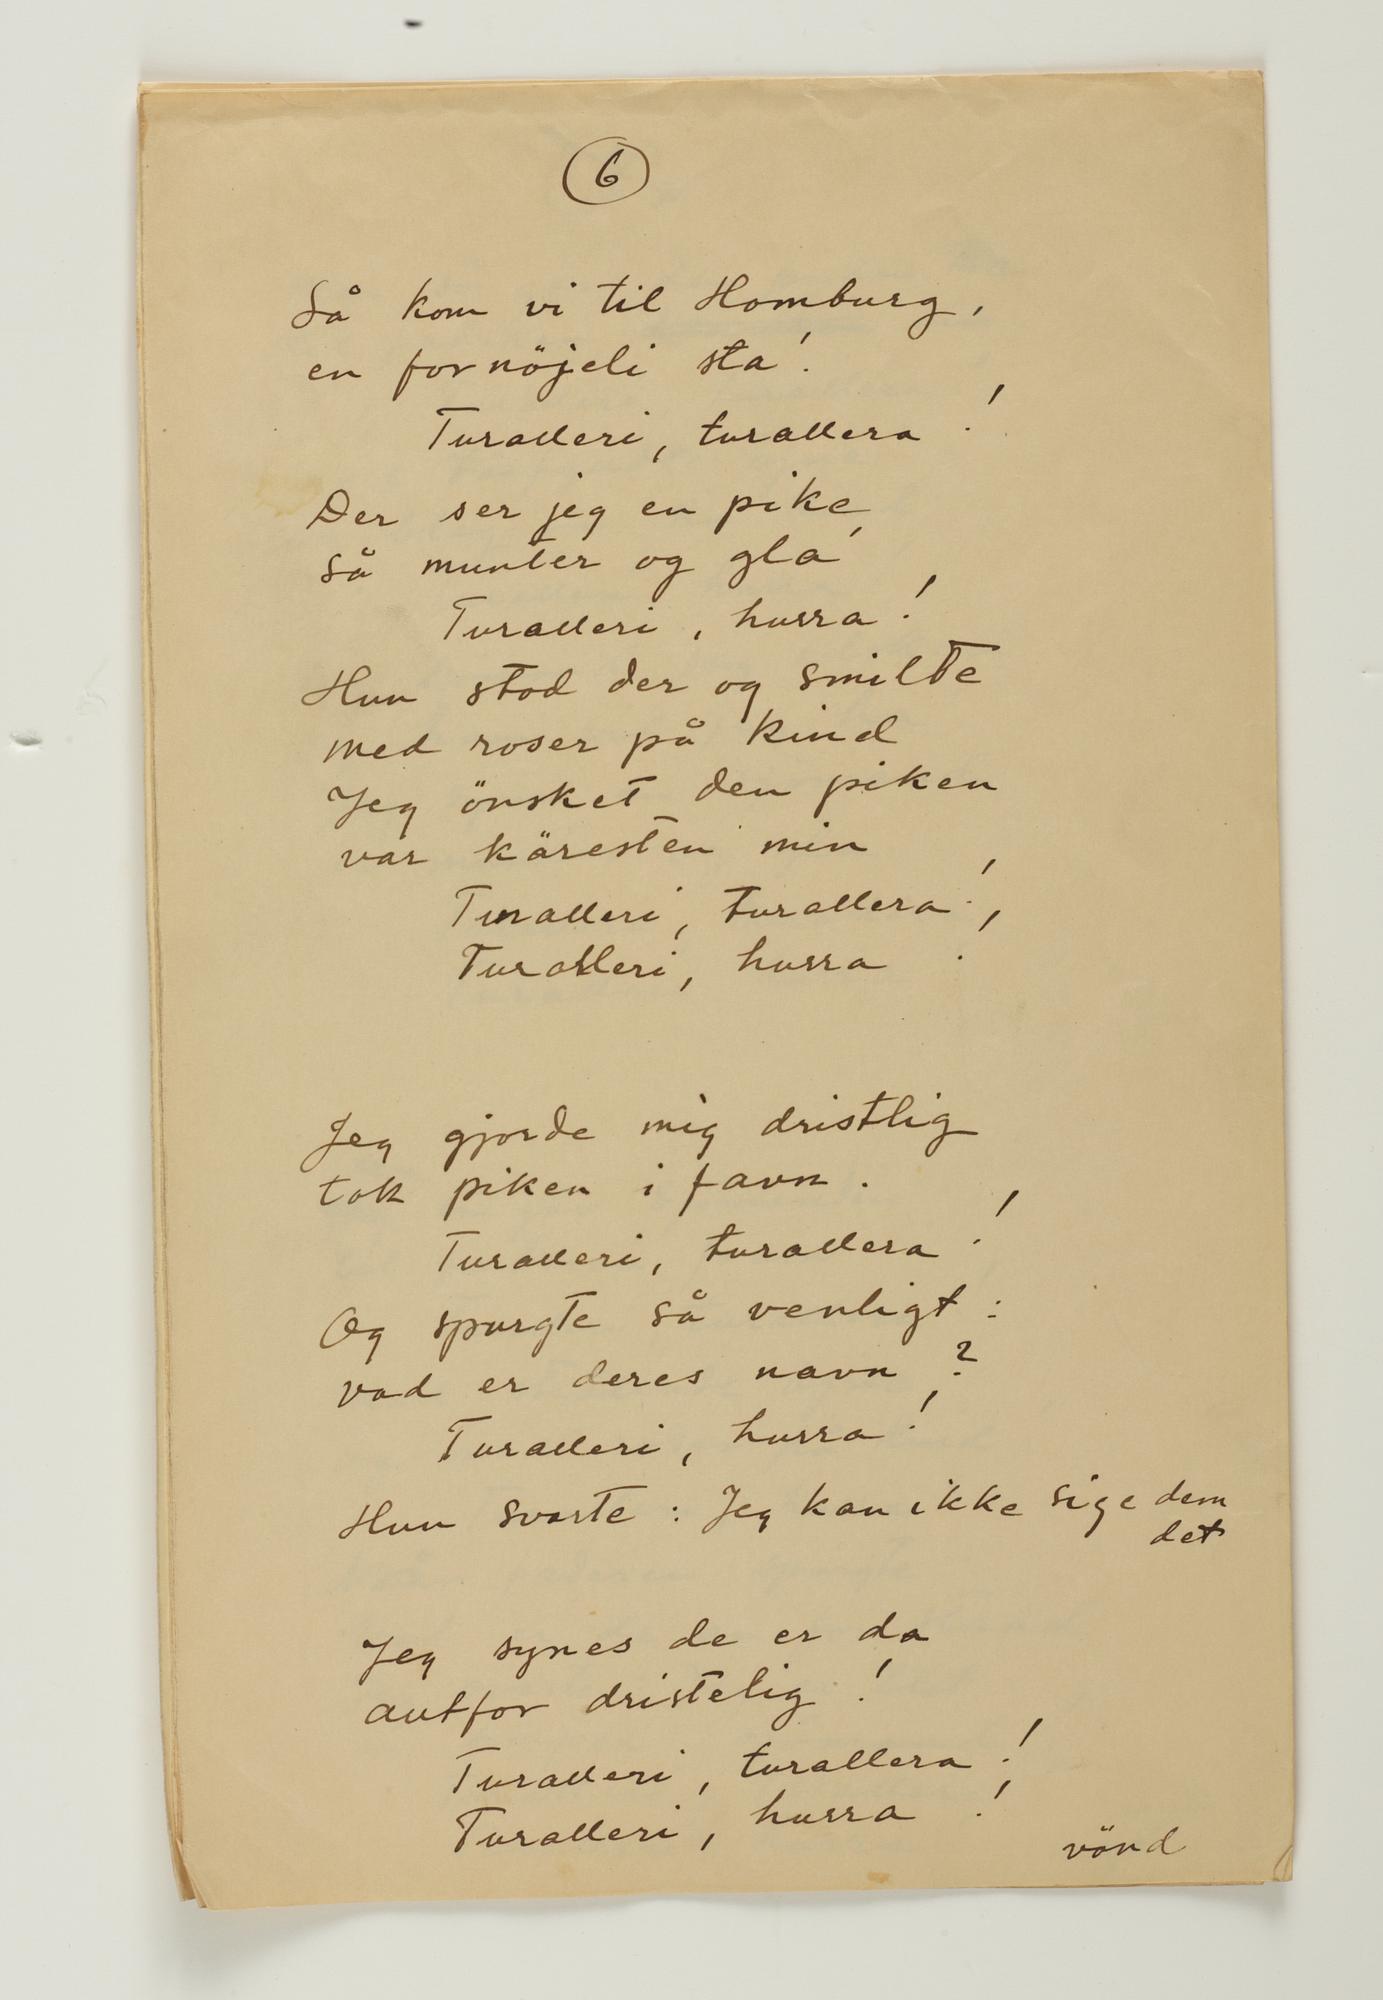 6
Så kom vi til Homburg,
en fornöjeli sta!
Turalleri, turallera!
Der ser jeg en pike
så munter og gla
Turalleri, hurra!
Hun stod der og smilte
med roser på kind
Jeg önsket den piken
var käresten min
Turalleri, turallera!
Turalleri, hurra!
Jeg gjorde mig dristlig
tok piken i favn.
Turalleri, turallera!
Og spurgte så venligt:
vad er deres navn?
Turalleri, hurra!
Hun svarte: Jeg kan ikke sige dem
det
Jeg synes de er da
altfor dristelig!
Turalleri, turallera!
Turalleri, hurra!
vänd